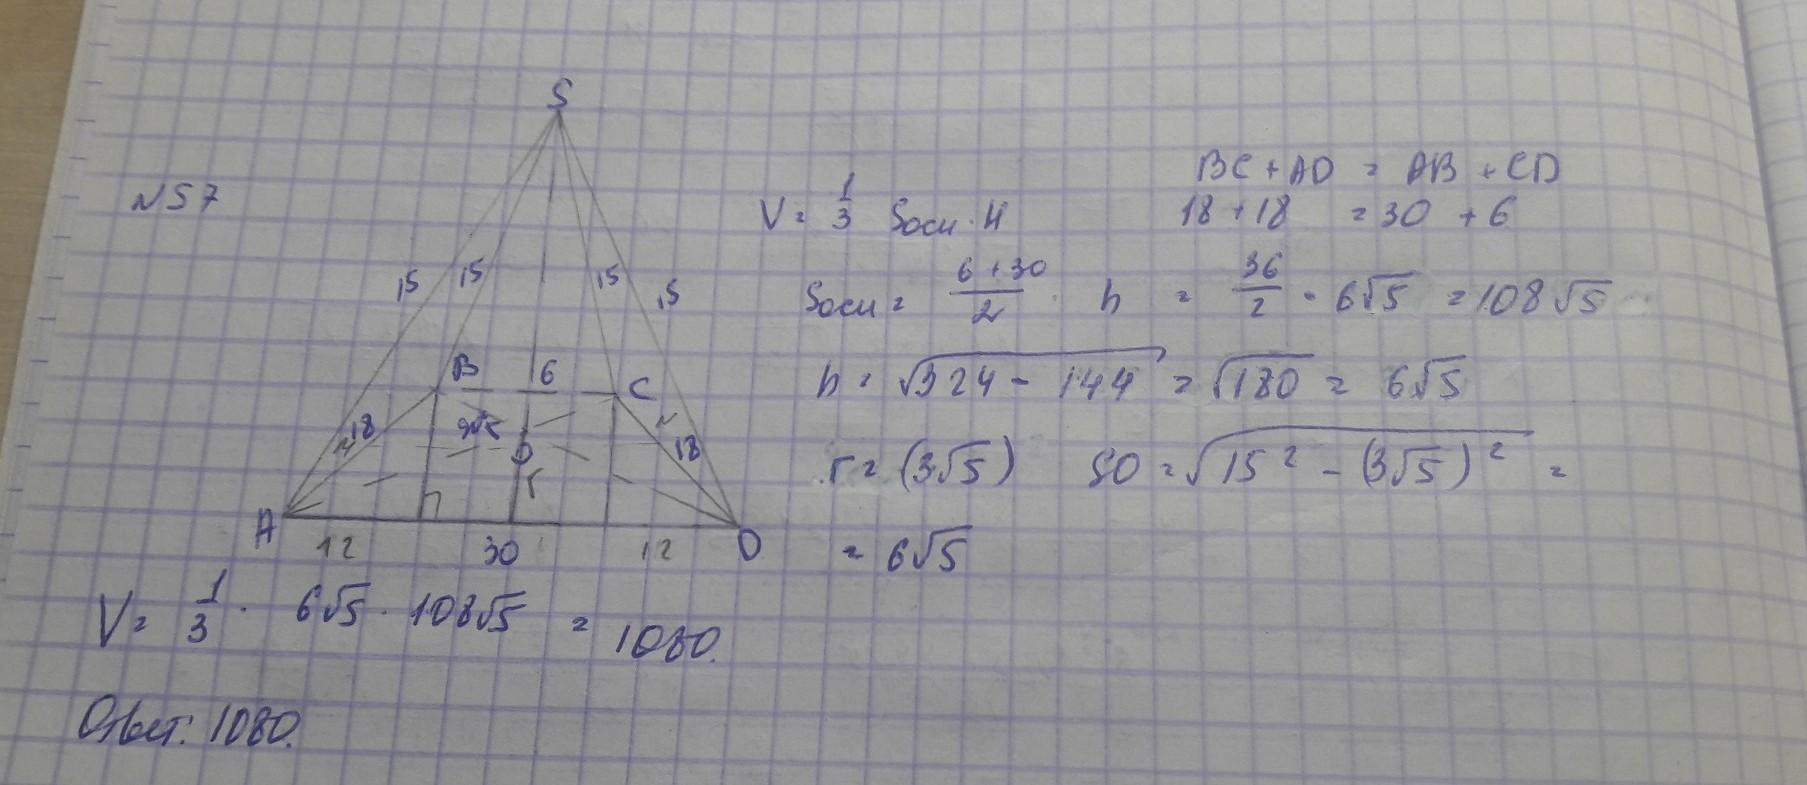 N57
S
15 15 15 15
B 6 C
18 18
O
r
A 12 30 12 D
V = 1/3 Sосн · H
BC + AD = AB + CD
18 + 18 = 30 + 6
Sосн = (6 + 30)/2 · h = 36/2 · 6√5 = 108√5
h = √(324 - 144) = √180 = 6√5
r = (3√5) SO = √(15² - (3√5)²) =
= 6√5
V = 1/3 · 6√5 · 108√5 = 1080.
Ответ: 1080.